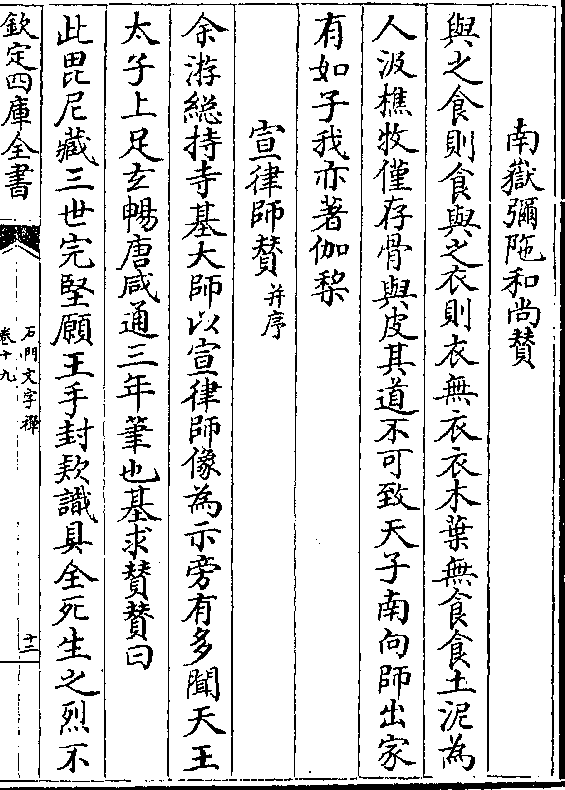 南嶽彌陁和尚賛
與之食則食與之衣則衣無衣衣木葉無食食土泥為
人汲樵牧僅存骨與皮其道不可致天子南向師出家
有如子我亦著伽棃
宣律師賛并序
余游緫持寺基大師以宣律師像為示旁有多聞天王
太子上足玄暢唐咸通三年筆也基求賛賛曰
此毘尼藏三世完堅願王手封欵識具全死生之烈不
欽定四庫全書
石門文字禪
卷十九
十三